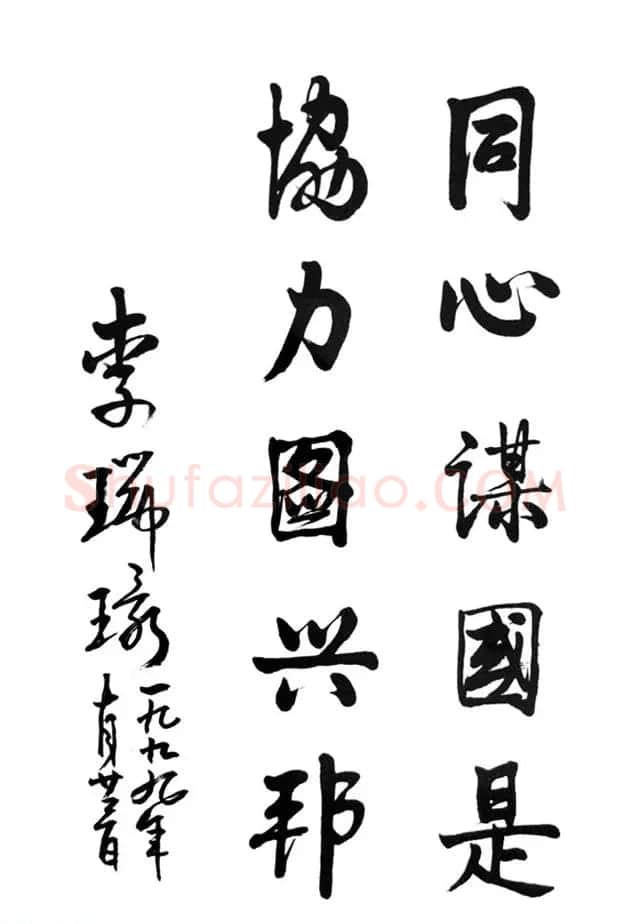 同心謀國是
協力圖兴邦
李瑞環
一九九九年
十月廿二日
Shufaziliao.COM